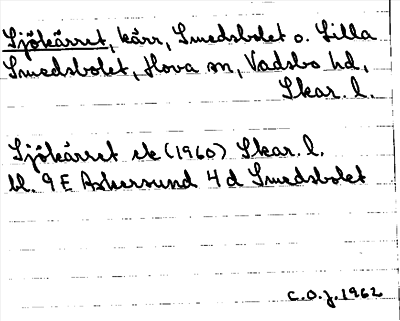 Sjökärret, kärr, Smedsbolet o. Lilla
Smedsbolet, Hova sn, Vadsbo hd,
Skar. l.
Sjökärret ek (1960) Skar. l.
bl. 9 E Askersund 4 d Smedsbolet
C.O.J. 1962